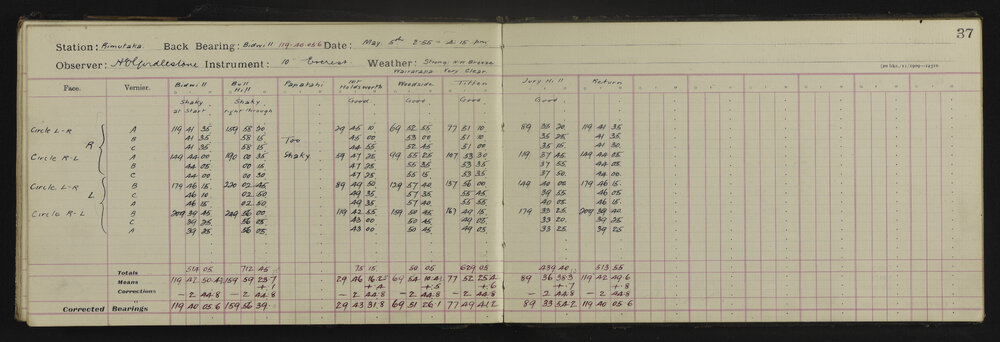 37
Station: Rimutaka. Back Bearing: Bidwill 119.40.05.6 Date: May 5th 2.55 – 4.15 pm
Observer: Instrument: 10" Everest Weather: Strong N.W. Breeze
Wairarapa Very Clear.
Face. Vernier. Bidwill Bull Hill Papatahi Mt Holdsworth Woodside Tiffen Jury Hill Return
Shaky at Start. Shaky right through Good. Good Good Good
Circle L-R A 119 41 35 159 58 30 29 45 10 69 52 55 77 51 10 89 35 20 119 41 35
R B 41 35 58 15 Too 45 00 53 00 51 10 35 15 41 35
C 41 35 58 15 44 55 52 45 51 00 35 15 41 30
Circle R-L A 149 44 00 190 00 35 Shaky 59 47 25 99 55 25 107 53 30 119 37 45 149 44 05
B 44 05 00 15 47 25 55 35 53 35 37 55 44 05
C 44 00 00 30 47 25 55 15 53 35 37 50 44 00
Circle L-R B 179 46 15 220 02 45 89 49 50 129 57 40 137 56 00 149 40 05 179 46 15
L C 46 10 02 50 49 35 57 35 55 45 39 55 46 05
A 46 15 02 50 49 35 57 40 55 55 40 05 46 15
Circle R-L B 209 39 45 249 56 00 119 42 55 159 50 45 167 49 15 179 33 25 209 39 40
C 39 25 56 05 43 00 50 45 49 05 33 20 39 25
A 39 25 56 05 43 00 50 45 49 05 33 25 39 25
Totals 514 05 712 45 75 15 50 05 629 05 439 40 513 55
Means 119 42 50.4 159 59 23.7 29 46 16.25 69 54 10.4 77 52 25.4 89 36 38.3 119 42 49.6
+.1 +.4 +.5 +.6 +.7 +.8
Corrections – 2 44.8 – 2 44.8 – 2 44.8 – 2 44.8 – 2 44.8 – 2 44.8 – 2 44.8
Corrected Bearings 119 40 05.6 159 56 39. 29 43 31.8 69 51 26.1 77 49 41.2 89 33 54.2 119 40 05.6